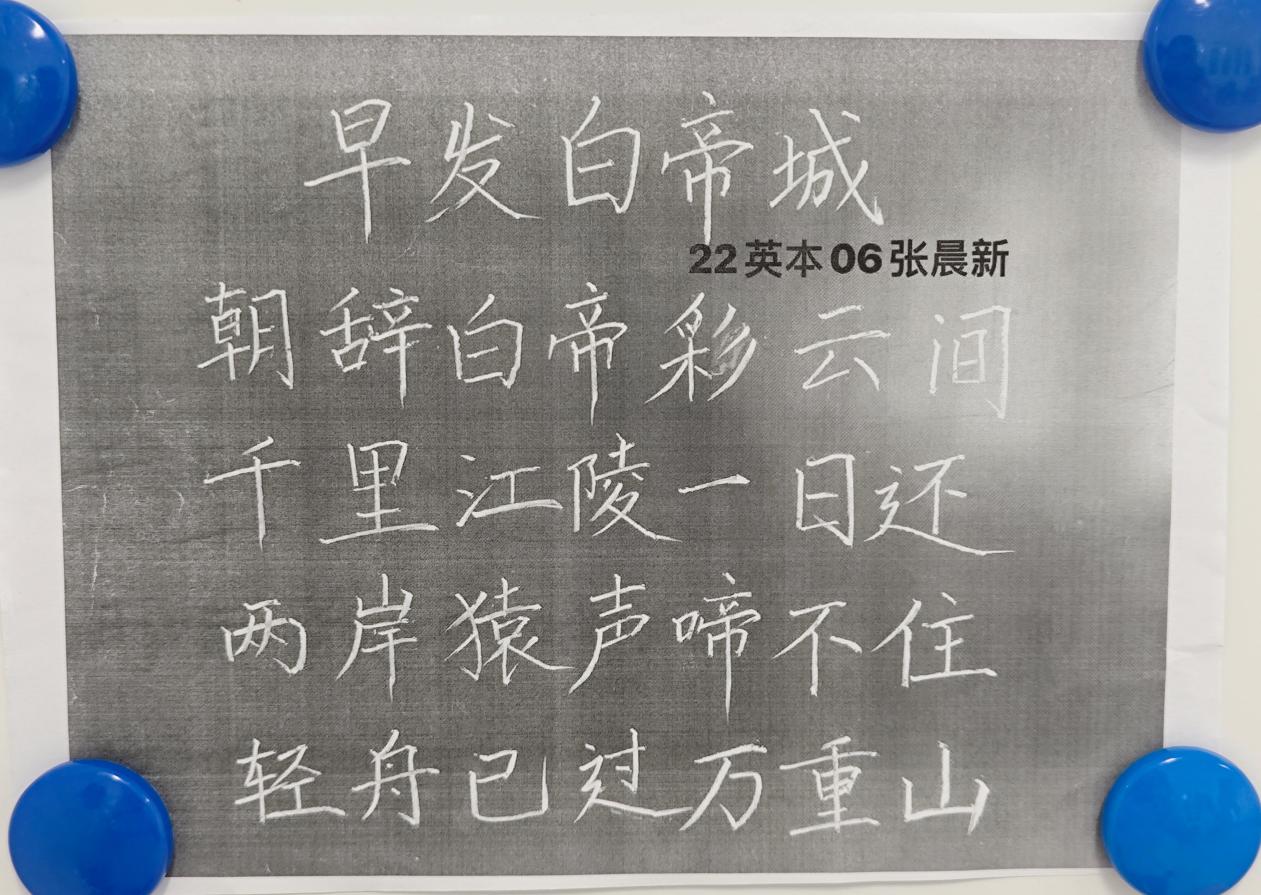 早发白帝城
22英本06张晨新
朝辞白帝彩云间
千里江陵一日还
两岸猿声啼不住
轻舟已过万重山